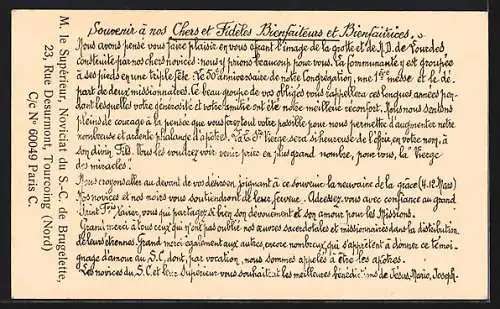 Souvenir à nos Chers et Fidèles Bienfaiteurs et Bienfaitrices.
Nous avons pensé vous faire plaisir en vous offrant l'image de la grotte et de N.D. de Lourdes,
construite par nos chers novices : nous y prions beaucoup pour vous. La Communauté y est groupée
à ses pieds en une triple fête. Le 50e anniversaire de notre Congrégation, une 1ère messe et le dé-
part de deux missionnaires. Ce beau groupe de vos obligés vous rappellera ces longues années pen-
dant lesquelles votre générosité et votre amitié ont été notre meilleur reconfort. Nous nous sentons
pleins de courage à la pensée que vous ferez tout votre possible pour nous permettre d'augmenter notre
nombreuse et ardente phalange d'apôtres. La T. Ste Vierge sera si heureuse de l'offrir, en votre nom, à
son divin Fils. Vous les voudrez voir venir prier en plus grand nombre, pour vous, la Vierge
des miracles.
Nous croyons aller au devant de vos désirs en joignant à ce souvenir la neuvaine de la grâce (4.12 Mars)
Nos novices et nos moirs vous soutiendront de leur ferveur. Adressez vous avec confiance au grand
Saint Frs Xavier, vous qui partagez si bien son dévouement et son amour pour les Missions.
Grand merci à tous ceux qui n'ont pas oublié nos œuvres sacerdotales et missionnaires dans la distribution
de leurs étrennes. Grand merci également aux autres, encore nombreux qui s'apprêtent à donner ce témoi-
gnage d'amour au S.C. dont, par vocation, nous sommes appelés à être les apôtres.
Les novices du S.C. et leur Supérieur vous souhaitent les meilleures bénédictions de Jésus, Marie, Joseph.
M. le Supérieur, Noviciat du S.-C. de Brugelette,
23, Rue Desurmont, Tourcoing (Nord)
C/c No 60049 Paris C.